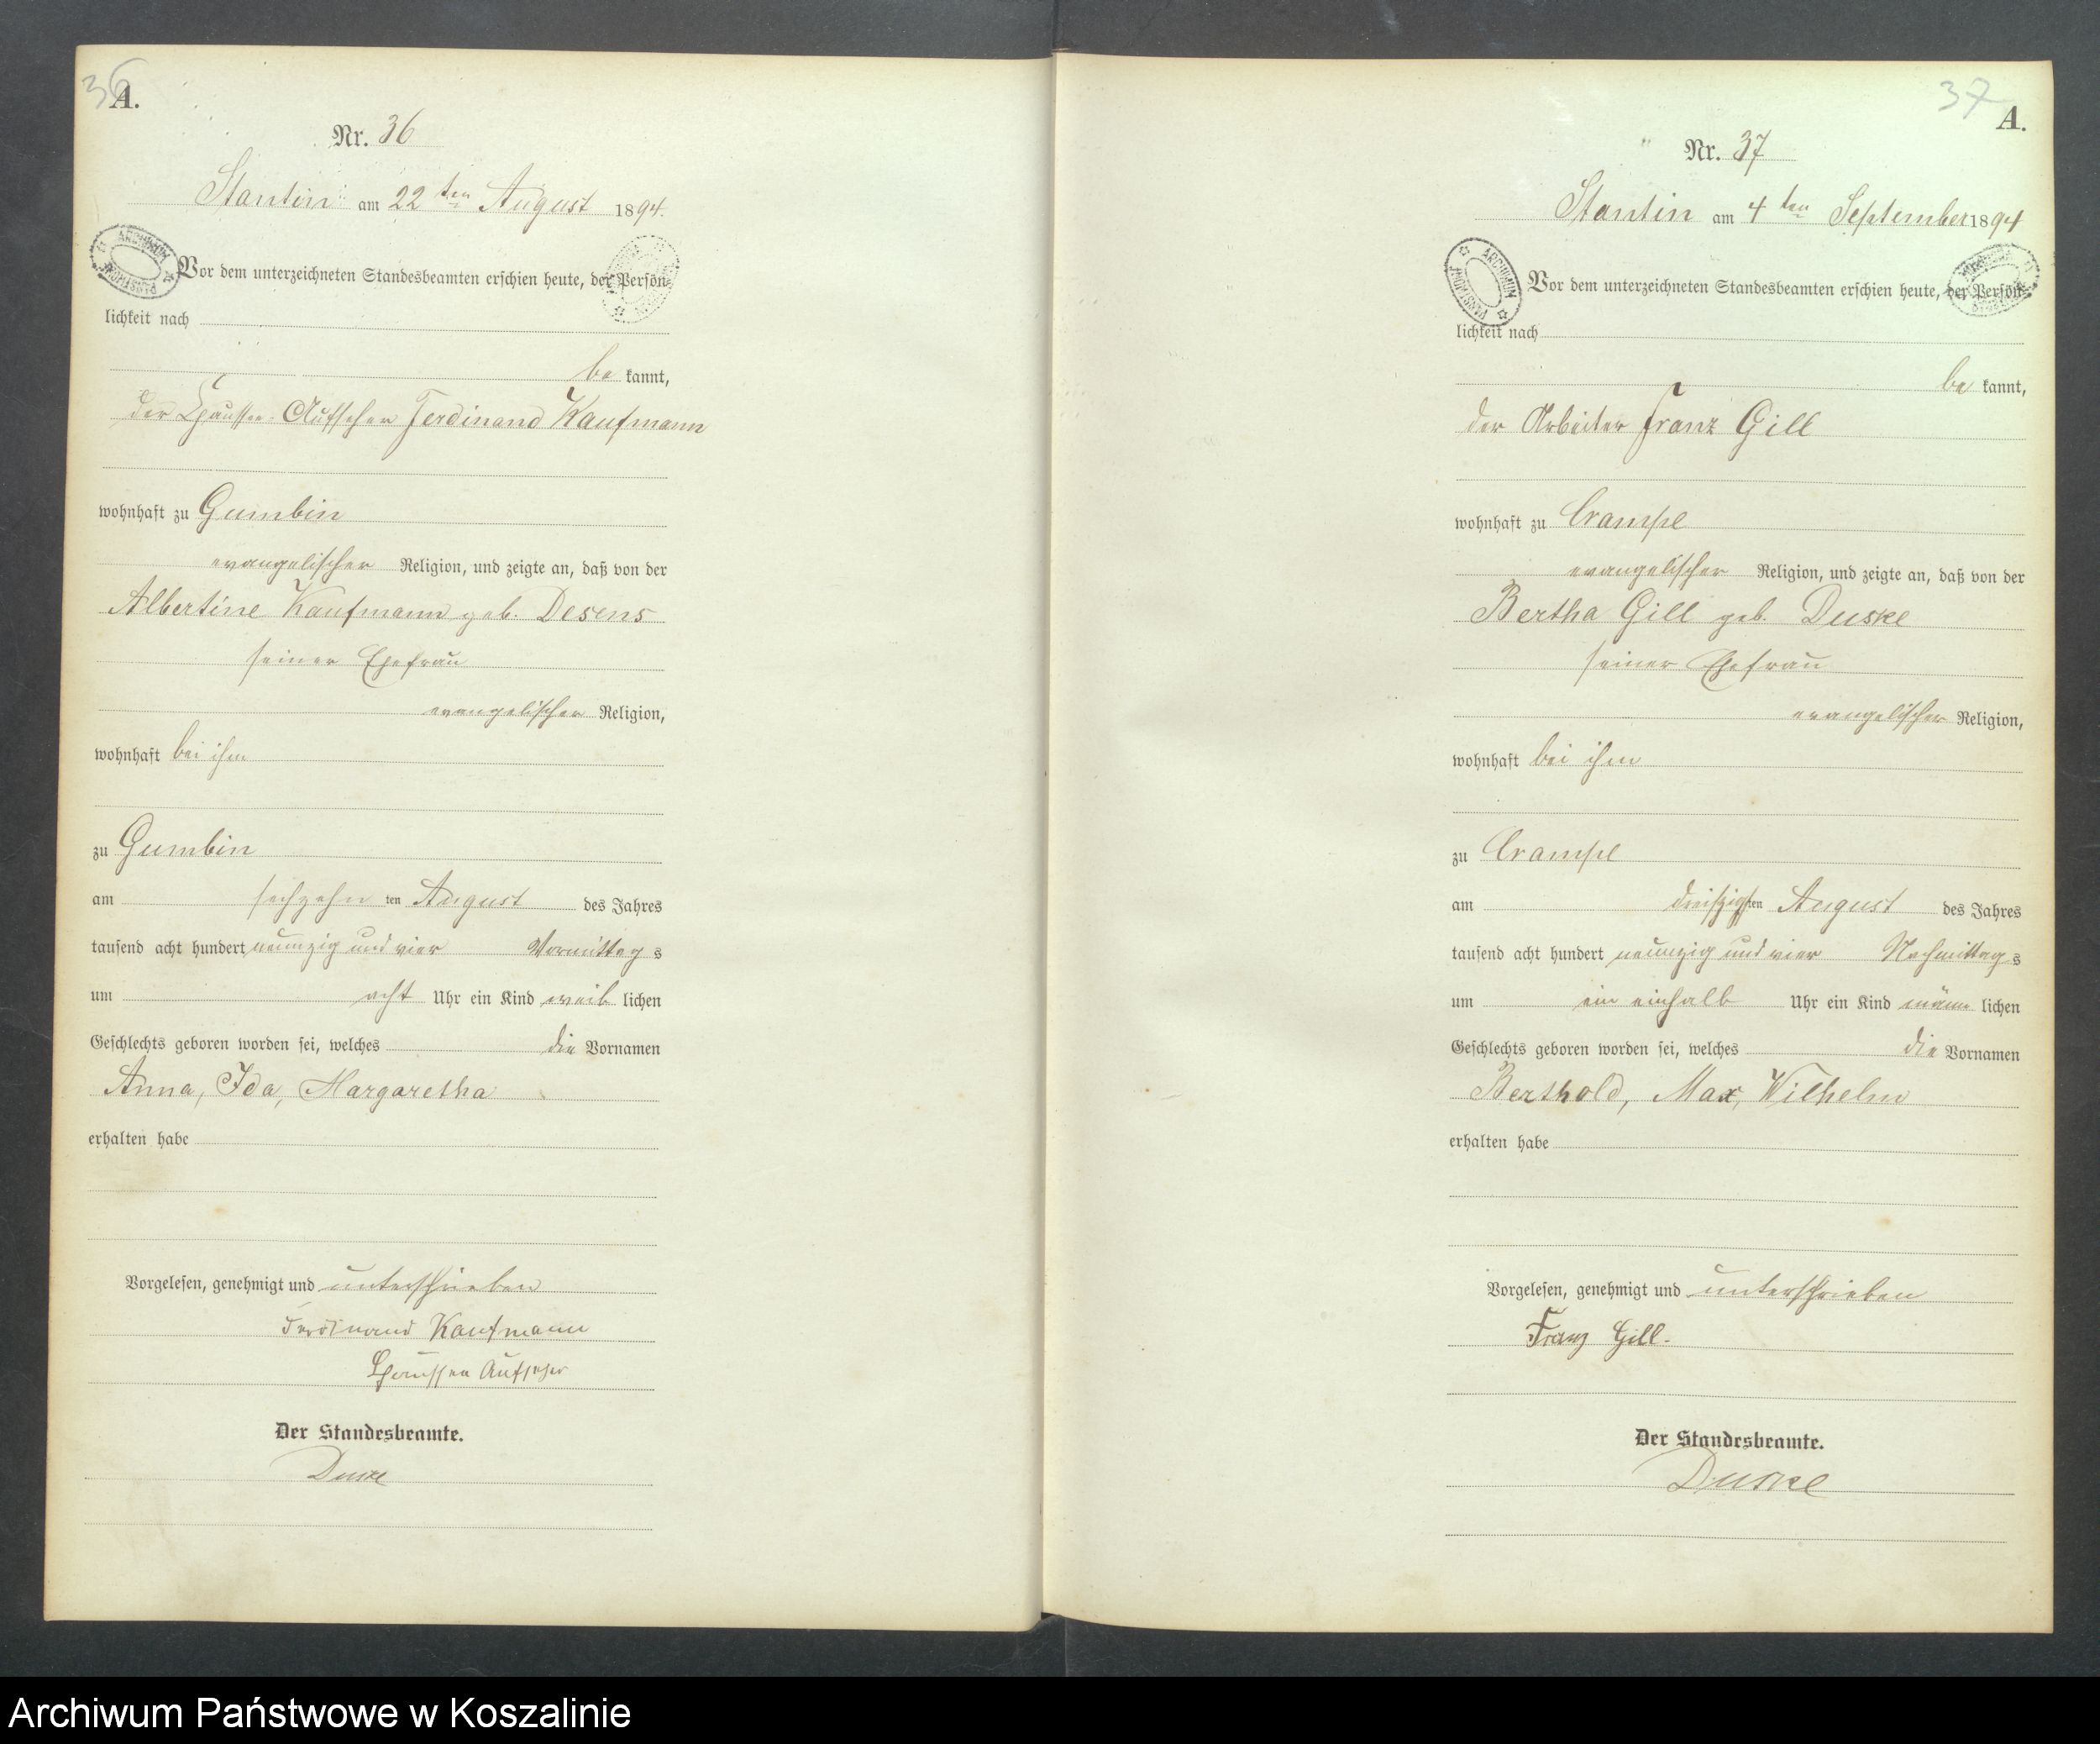 36
A.
Nr. 36
Stantin am 22 ten August 1894.
Vor dem unterzeichneten Standesbeamten erschien heute, der Persön-
lichkeit nach
be kannt,
der Chaussee-Aufseher Ferdinand Kaufmann
wohnhaft zu Gumbin
evangelischer Religion, und zeigte an, daß von der
Albertine Kaufmann geb. Desens
seiner Ehefrau
evangelischer Religion,
wohnhaft bei ihm
zu Gumbin
am sechzehn ten August des Jahres
tausend acht hundert neunzig und vier Vormittag s
um acht Uhr ein Kind weib lichen
Geschlechts geboren worden sei, welches die Vornamen
Anna, Ida, Margaretha
erhalten habe
Vorgelesen, genehmigt und unterschrieben
Ferdinand Kaufmann
Chaussee Aufseher
Der Standesbeamte.
Duske
37
A.
Nr. 37
Stantin am 4 ten September 1894
Vor dem unterzeichneten Standesbeamten erschien heute, der Persön-
lichkeit nach
be kannt,
der Arbeiter Franz Gill
wohnhaft zu Crampe
evangelischer Religion, und zeigte an, daß von der
Bertha Gill geb. Duske
seiner Ehefrau
evangelischer Religion,
wohnhaft bei ihm
zu Crampe
am dreißigsten August des Jahres
tausend acht hundert neunzig und vier Nachmittag s
um ein einhalb Uhr ein Kind männ lichen
Geschlechts geboren worden sei, welches die Vornamen
Berthold, Max, Wilhelm
erhalten habe
Vorgelesen, genehmigt und unterschrieben
Franz Gill.
Der Standesbeamte.
Duske
Archiwum Państwowe w Koszalinie